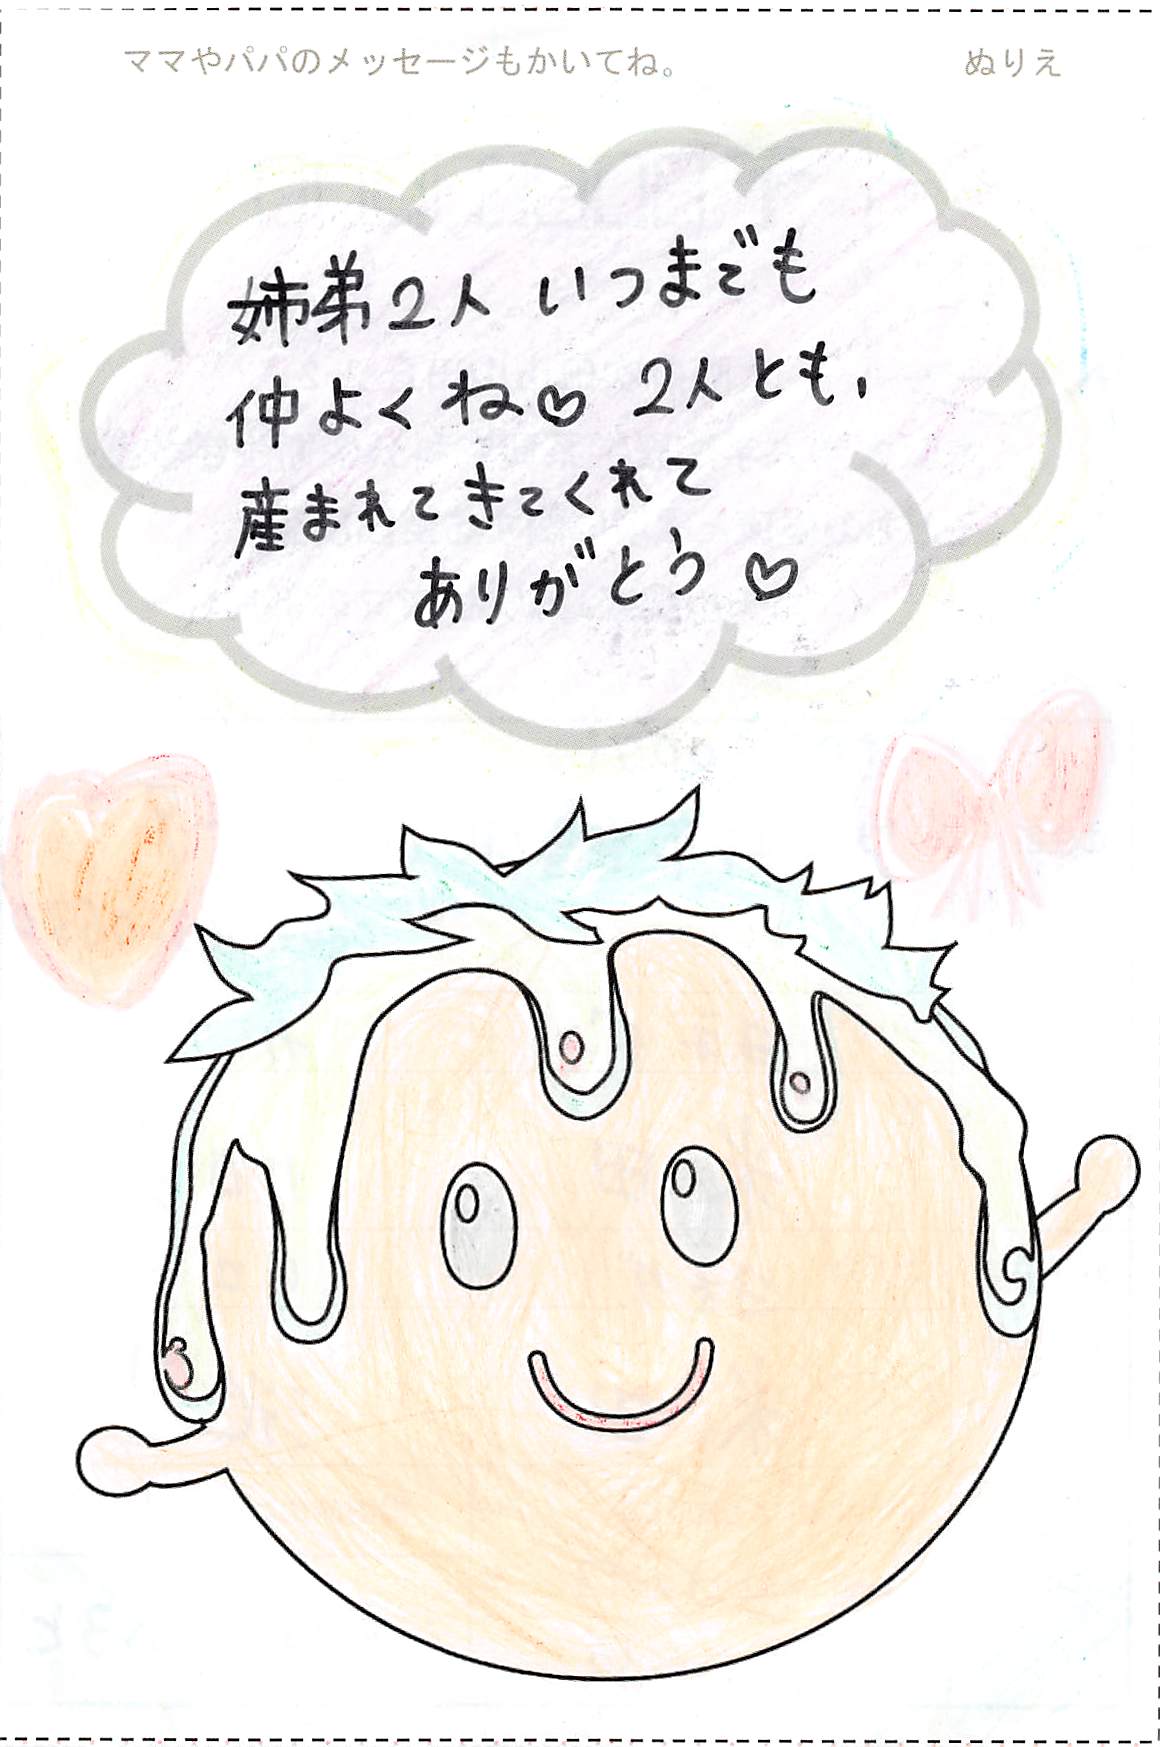 ママやパパのメッセージもかいてね。 ぬりえ
姉弟2人 いつまでも
仲よくね♡ 2人とも、
産まれてきてくれて
ありがとう♡